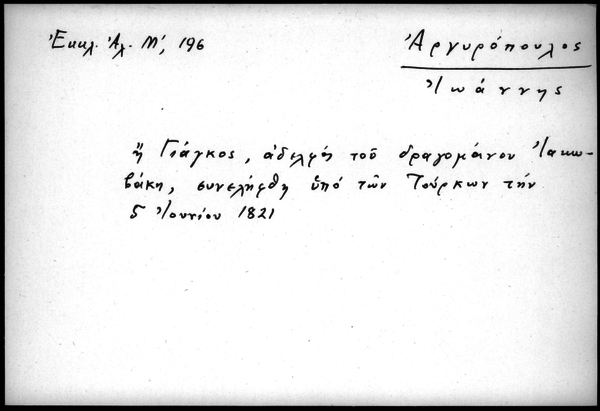 Ἐκκλ. Ἀλ. Μ', 196
Ἀργυρόπουλος
Ἰωάννης
ἤ Γιάγκος, ἀδελφός τοῦ δραγομάνου Ἰακω-
βάκη, συνελήφθη ὑπό τῶν Τούρκων τήν
5 Ἰουνίου 1821